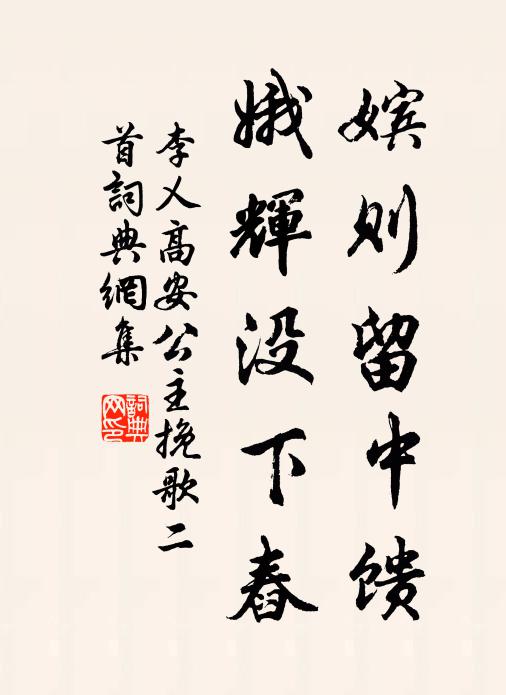 嫔则留中馈
娥輝没下舂
李乂高安公主挽歌二
首詞典網集
詞典网印